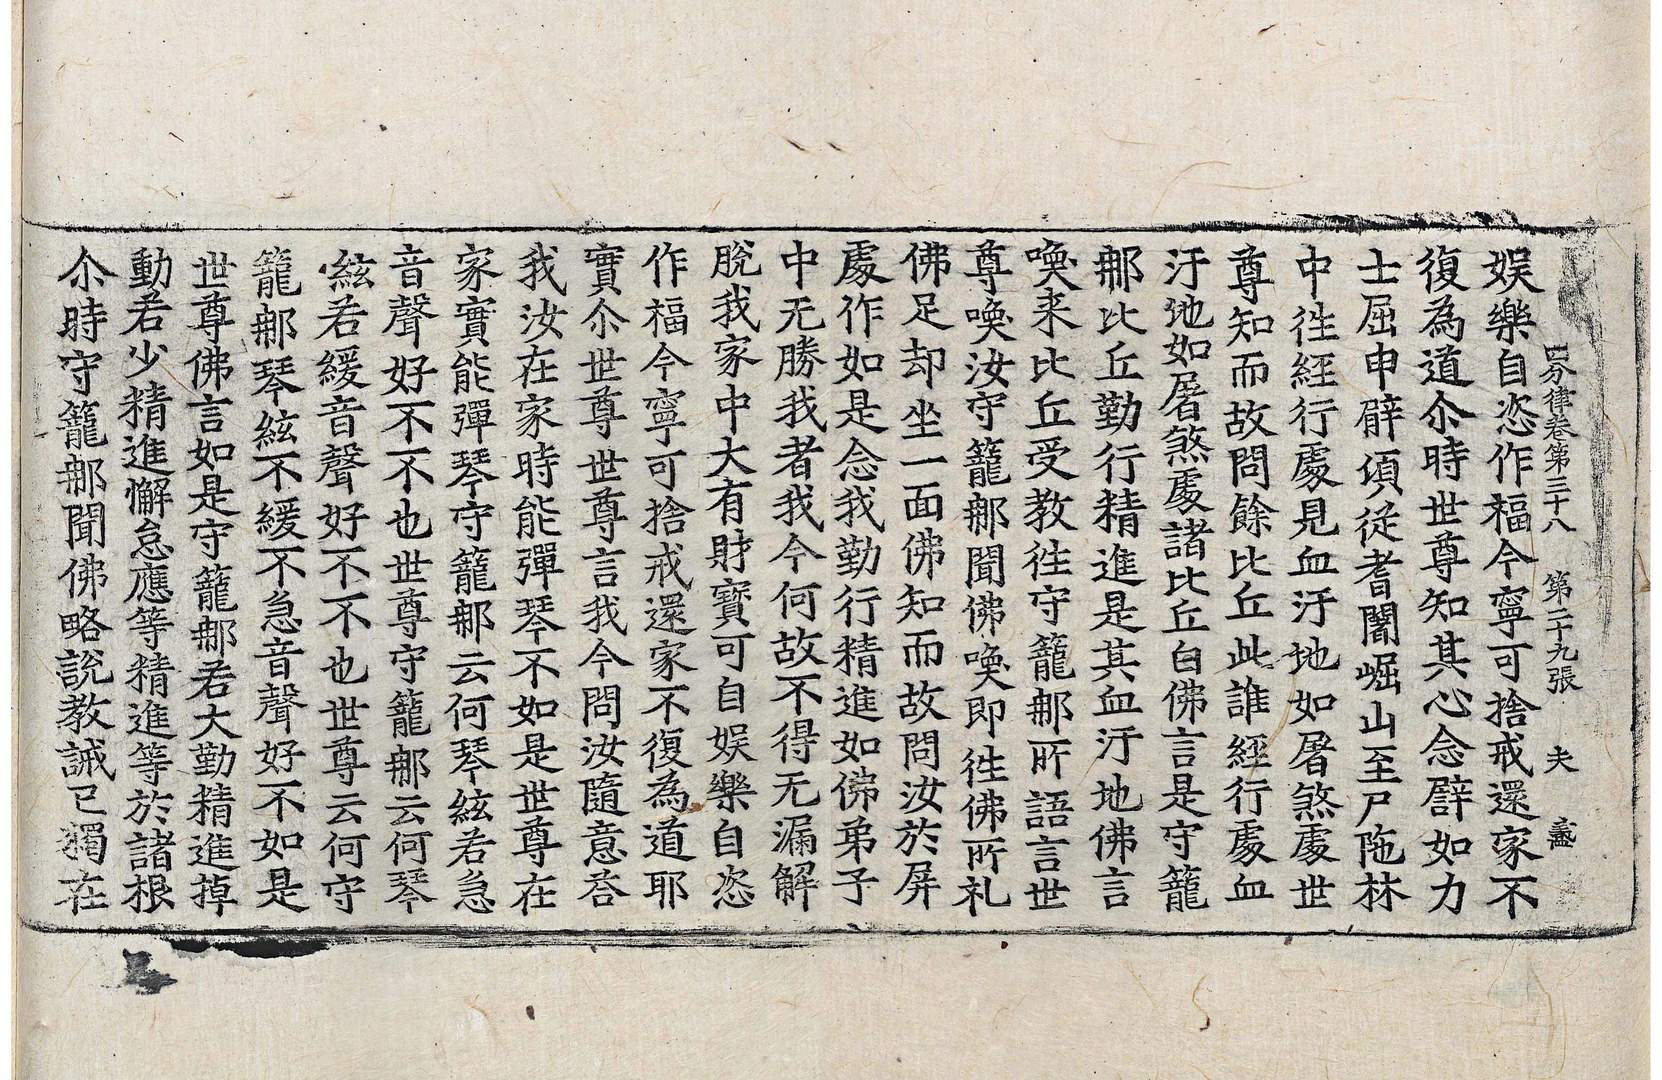 四分律卷第三十八 第二十九張 夫
娛樂自恣作福今寧可捨戒還家不
復為道尒時世尊知其心念譬如力
士屈申臂頃從耆闍崛山至尸陁林
中徃經行處見血汙地如屠煞處世
尊知而故問餘比丘此誰經行處血
汙地如屠煞處諸比丘白佛言是守籠
郍比丘勤行精進是其血汙地佛言
喚来比丘受教徃守籠郍所語言世
尊喚汝守籠郍聞佛喚即徃佛所礼
佛足却坐一面佛知而故問汝於屏
處作如是念我勤行精進如佛弟子
中无勝我者我今何故不得无漏解
脫我家中大有財寶可自娛樂自恣
作福今寧可捨戒還家不復為道耶
實尒世尊世尊言我今問汝隨意荅
我汝在家時能彈琴不如是世尊在
家實能彈琴守籠郍云何琴絃若急
音聲好不不也世尊守籠郍云何琴
絃若緩音聲好不不也世尊云何守
籠郍琴絃不緩不急音聲好不如是
世尊佛言如是守籠郍若大勤精進掉
動若少精進懈怠應等精進等於諸根
尒時守籠郍聞佛略說教誡已獨在